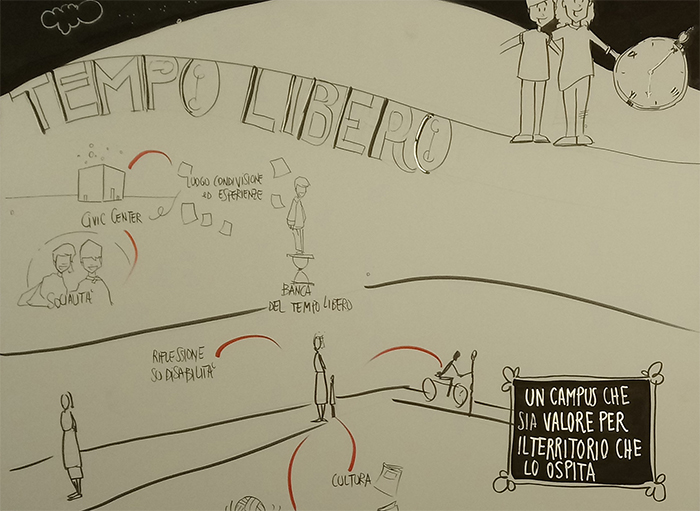 TEMPO LIBERO
LUOGO CONDIVISIONE
ED ESPERIENZE
CIVIC CENTER
SOCIALITÀ
BANCA
DEL TEMPO LIBERO
RIFLESSIONE
SU DISABILITÀ
UN CAMPUS CHE
SIA VALORE PER
IL TERRITORIO CHE
LO OSPITA
CULTURA